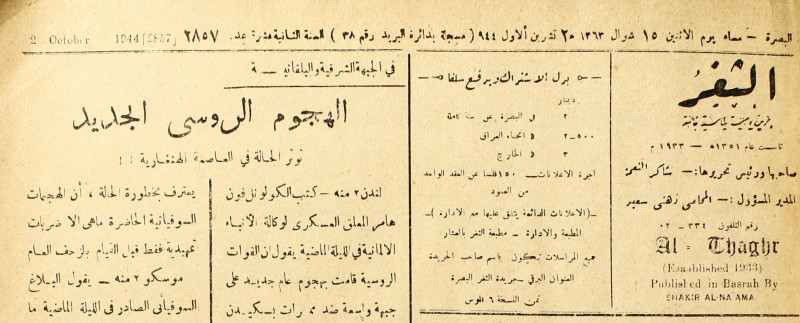 البصرة — مساء يوم الاثنين ١٥ شوال ١٣٦٣ هـ ٢ تشرين الاول ٩٤٤ ( مسجلة بدائرة البريد رقم ٣٨ ) السنة الثانية عشر: عدد. ٢٨٥٧ 2 October 1944 [2857]
الثغر
جريدة يومية سياسية
تأسست عام ١٣٥١ هـ — ١٩٣٣ م
صاحبها ورئيس تحريرها: — شاكر النعمة
المدير المسؤول: — المحامي زهني سعيد
رقم التلفون ٣٣٤ — ٠٢
Al - Thaghr
(Established 1933)
Published in Basrah By
SHAKIR AL-NA'AMA
بدل الاشتراك ويدفع سلفا
دينار
٢ في البصرة عن سنة كاملة
٥٠٠-٢ في انحاء العراق
٣ في الخارج
اجرة الاعلانات — ١٥٠ فلسا عن العقد الواحد
من العمود
— ( الاعلانات الدائمة يتفق عليها مع الادارة ) —
المطبعة والادارة — مطبعة الثغر بالعشار
جميع المراسلات تكون باسم صاحب الجريدة
العنوان البرقي — جريدة الثغر البصرة
ثمن النسخة ٦ فلوس
في الجبهة الشرقية والبلقانيـة
الهجوم الروسي الجديد
توتر الحالة في العاصمة الهنغارية ! !
لندن ٢ منه — كتب الكولونل فون
هامر المعلق العسكري لوكالة الانباء
الالمانية في الليلة الماضية يقول ان القوات
الروسية قامت بهجوم عام جديد على
جبهة واسعة ضد ممرات بسكيدن
يعترف بخطورة الحالة ، أن الهجمات
السوفياتية الحاضرة ماهي الا ضربات
تمهيدية فقط قبل القيام بالزحف العام
موسكو ٢ منه — يقول البلاغ
السوفياتي الصادر في الليلة الماضية ما